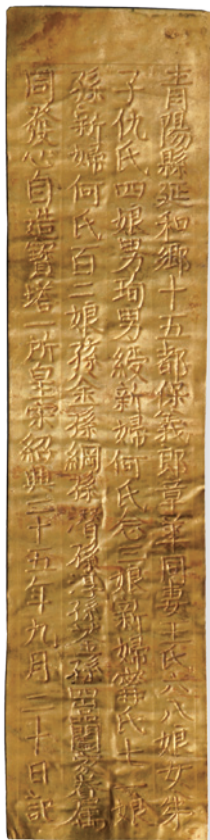 青陽縣延和鄉十五都保義郎章平同妻王氏六八娘女朱
子仇氏四娘男珣男綬新婦何氏念三娘新婦寗氏十一娘
孫新婦何氏百二娘孫金孫綱孫潜孫孫孫蘭家眷属
同發心自造寳塔一所皇宋紹興二十五年九月二十日記